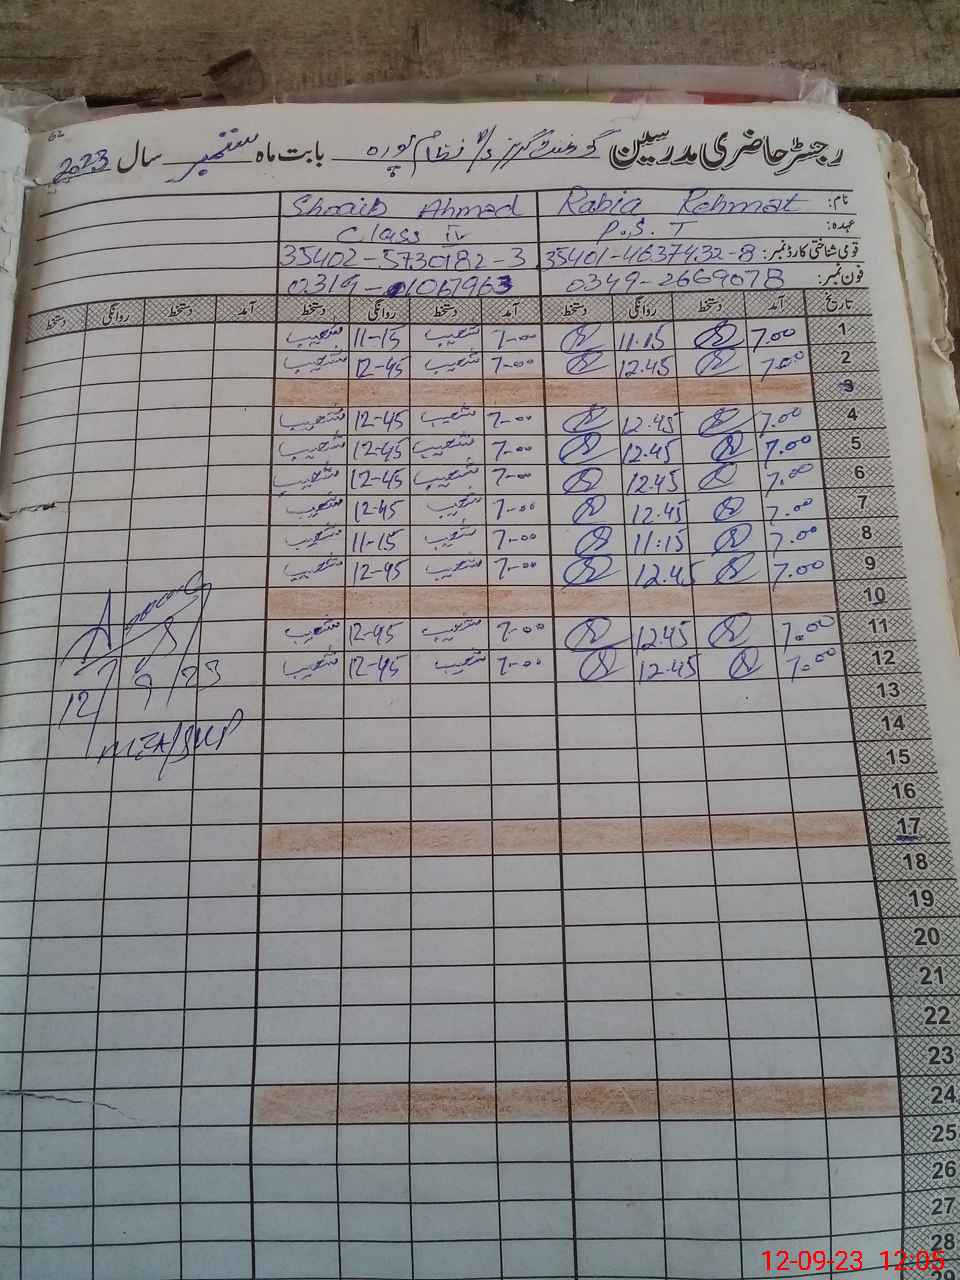 62
رجسٹر حاضری مدرسین گورنمنٹ گرلز نظام پورہ بابت ماہ ستمبر سال 2023
نام: Rabia Rehmat Shoaib Ahmad
عہدہ: P.S.T Class IV
قومی شناختی کارڈ نمبر: 35401-4637432-8 35402-5730182-3
فون نمبر: 0349-2669078
تاریخ آمد دستخط روانگی دستخط آمد دستخط روانگی دستخط آمد دستخط روانگی دستخط
1 7.00 11.15 7-00 شعیب 11-15 شعیب
2 7.00 12.45 7-00 شعیب 12-45 شعیب
3
4 7.00 12.45 7-00 شعیب 12-45 شعیب
5 7.00 12.45 7-00 شعیب 12-45 شعیب
6 7.00 12.45 7-00 شعیب 12-45 شعیب
7 7.00 12.45 7-00 شعیب 12-45 شعیب
8 7.00 11:15 7-00 شعیب 11-15 شعیب
9 7.00 12.45 7-00 شعیب 12-45 شعیب
10
11 7.00 12.45 7-00 شعیب 12-45 شعیب
12 7.00 12.45 7-00 شعیب 12-45 شعیب
12/9/23
13
14
15
16
17
18
19
20
21
22
23
24
25
26
27
28
29
12-09-23 12:05